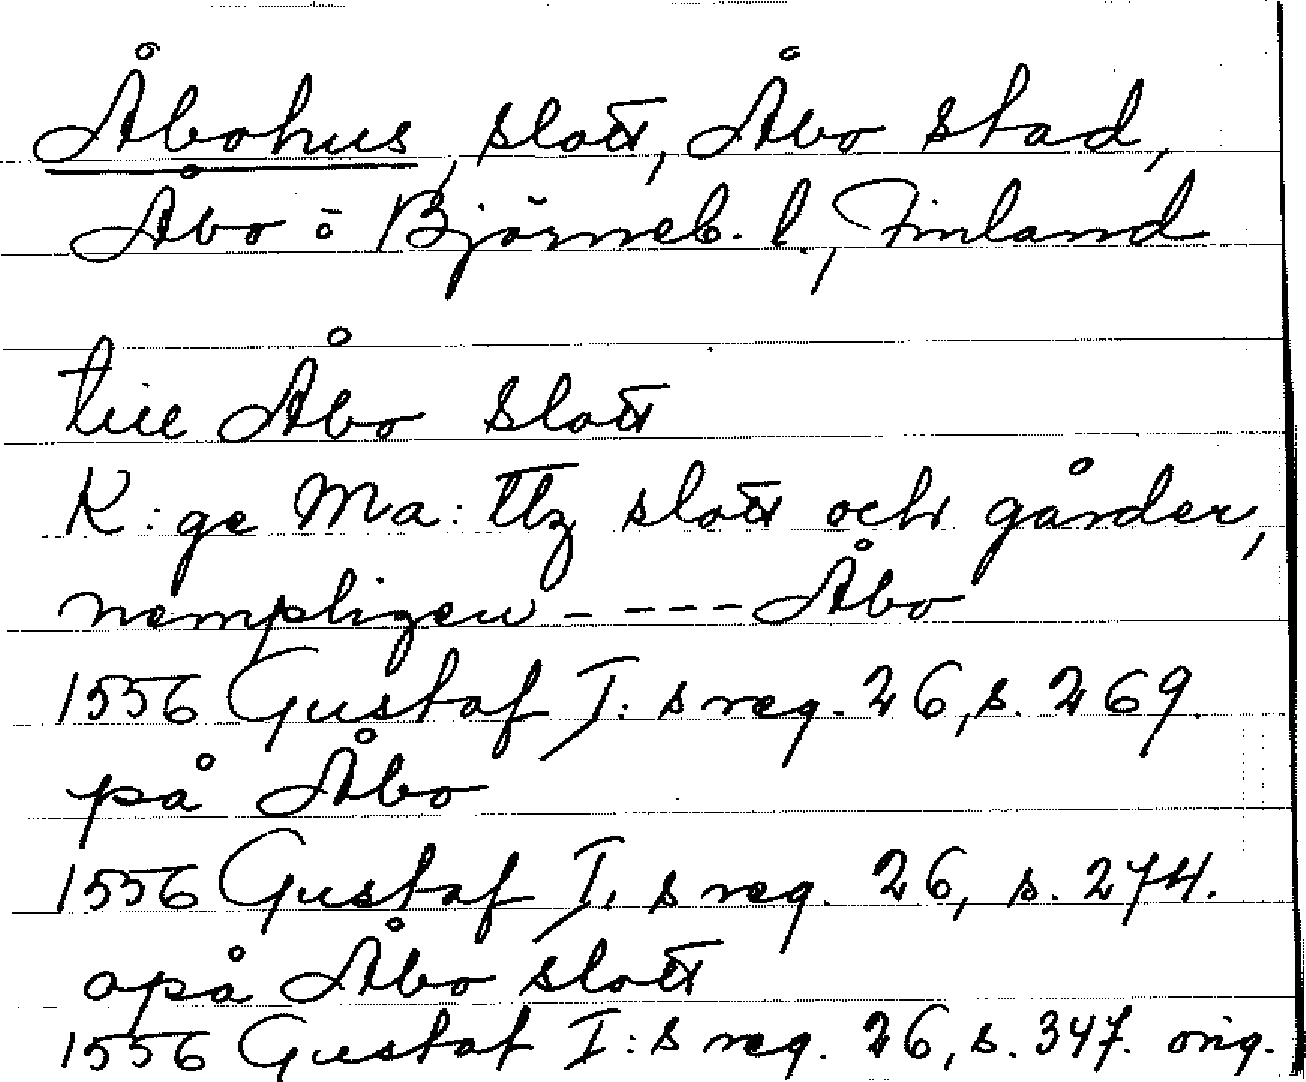 Åbohus, slott, Åbo stad,
Åbo o Björneb. l., Finland
till Åbo slott
K:ge Ma:ttz slott och gårder,
nempligen - - - - Åbo
1556 Gustaf I:s reg. 26, s. 269.
på Åbo
1556 Gustaf I:s reg. 26, s. 274.
opå Åbo slott
1556 Gustaf I:s reg. 26, s. 347. orig.